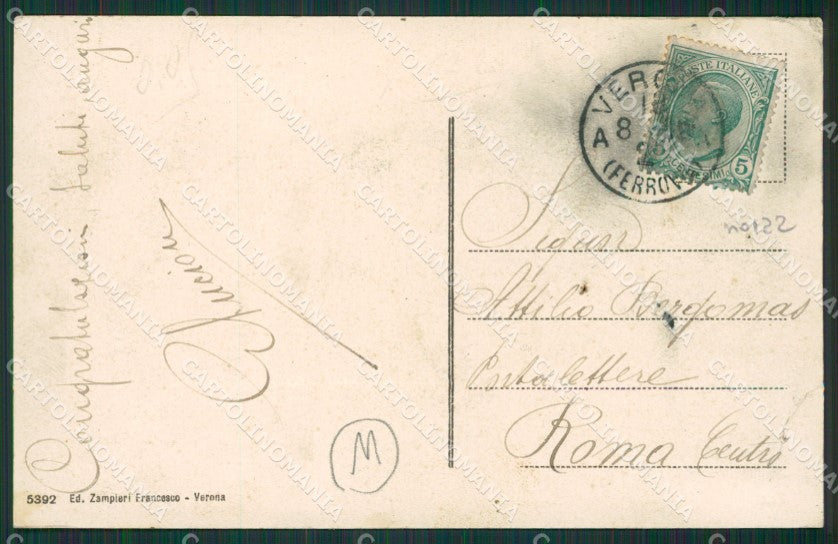 Congratulazioni, Saluti auguri
VERONA
A 8
(FERROVIA)
POSTE ITALIANE
CENTESIMI 5
no122
Signor
Attilio Bergomas
Portalettere
Roma Centro
M
5392 Ed. Zampieri Francesco - Verona
CARTOLINOMANIA